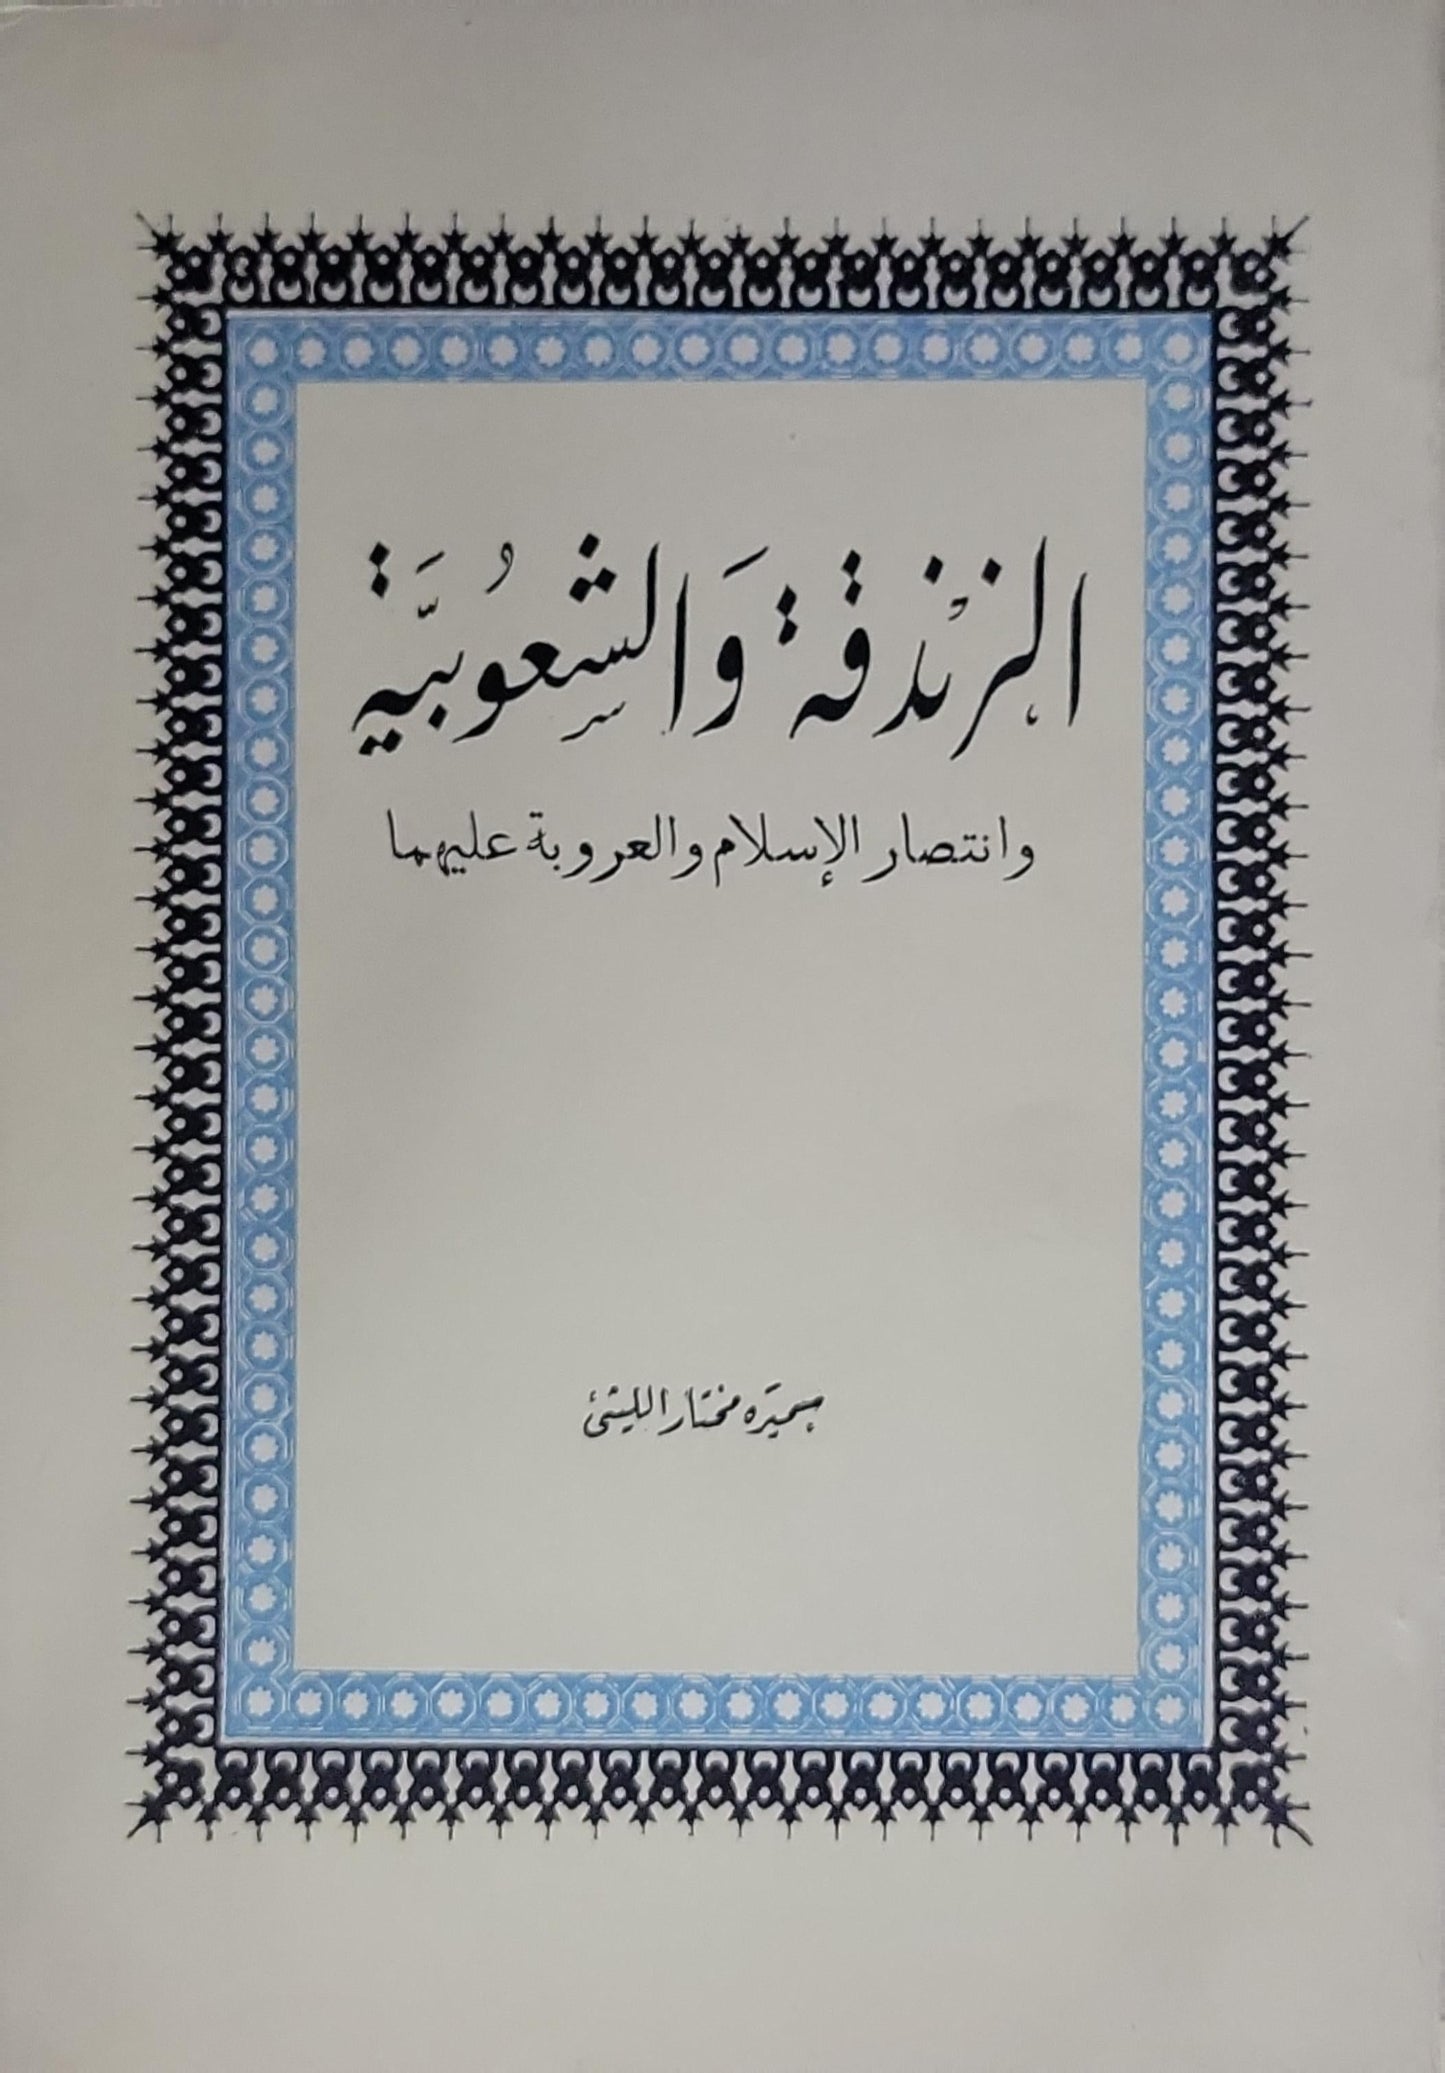 الزندقة وَالشعُوبيَّة
وانتصار الإسلام والعروبة عليهما
سميرة مختار الليثى